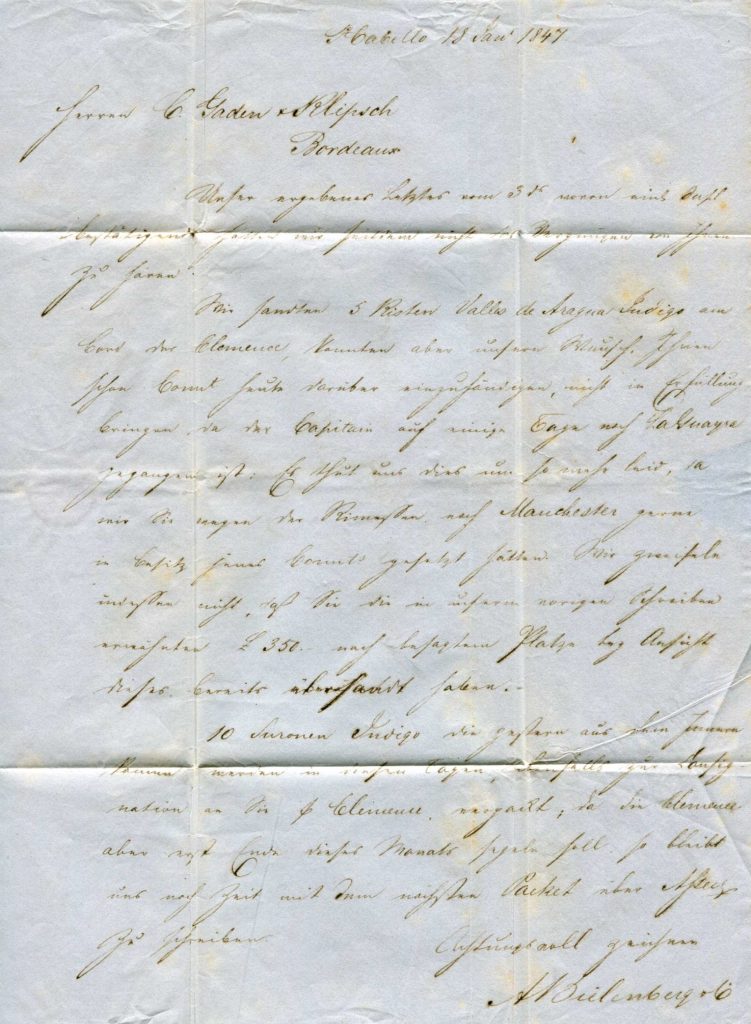 PCabello 18 Janr 1847
Herren C. Gaden & Klipsch
Bordeaux
Unser ergebenes Letztes vom 3 ds waren
bestätigend hatten wir seitdem nicht das Vergnügen von Ihnen
zu hören.
Wir sandten 5 Kisten Valles de Aragua Indigo am
Bord der Clemence, konnten aber unsern Wunsch, Ihnen
schon Connt heute darüber einzuhändigen, nicht in Erfüllung
bringen, da der Capitain auf einige Tage nach LaGuayra
gegangen ist; Es thut uns dies um so mehr leid, da
wir Sie wegen der Rimessen nach Manchester gerne
in Besitz jenes Connts gesetzt hätten. Wir zweifeln
indessen nicht, daß Sie die in unserm vorigen Schreiben
erwähnten £ 350.- nach besagtem Platze bey Ansicht
dieses bereits übersandt haben.-
10 Suronen Indigo die gestern aus dem Innern
kamen werden in diesen Tagen, ebenfalls zur Consig-
nation an Sie p Clemence, verpackt; da die Clemence
aber erst Ende dieses Monats segeln soll, so bleibt
uns noch Zeit mit dem nächsten Packet über
zu schreiben.
Achtungsvoll zeichnen
A Bielenberg & C